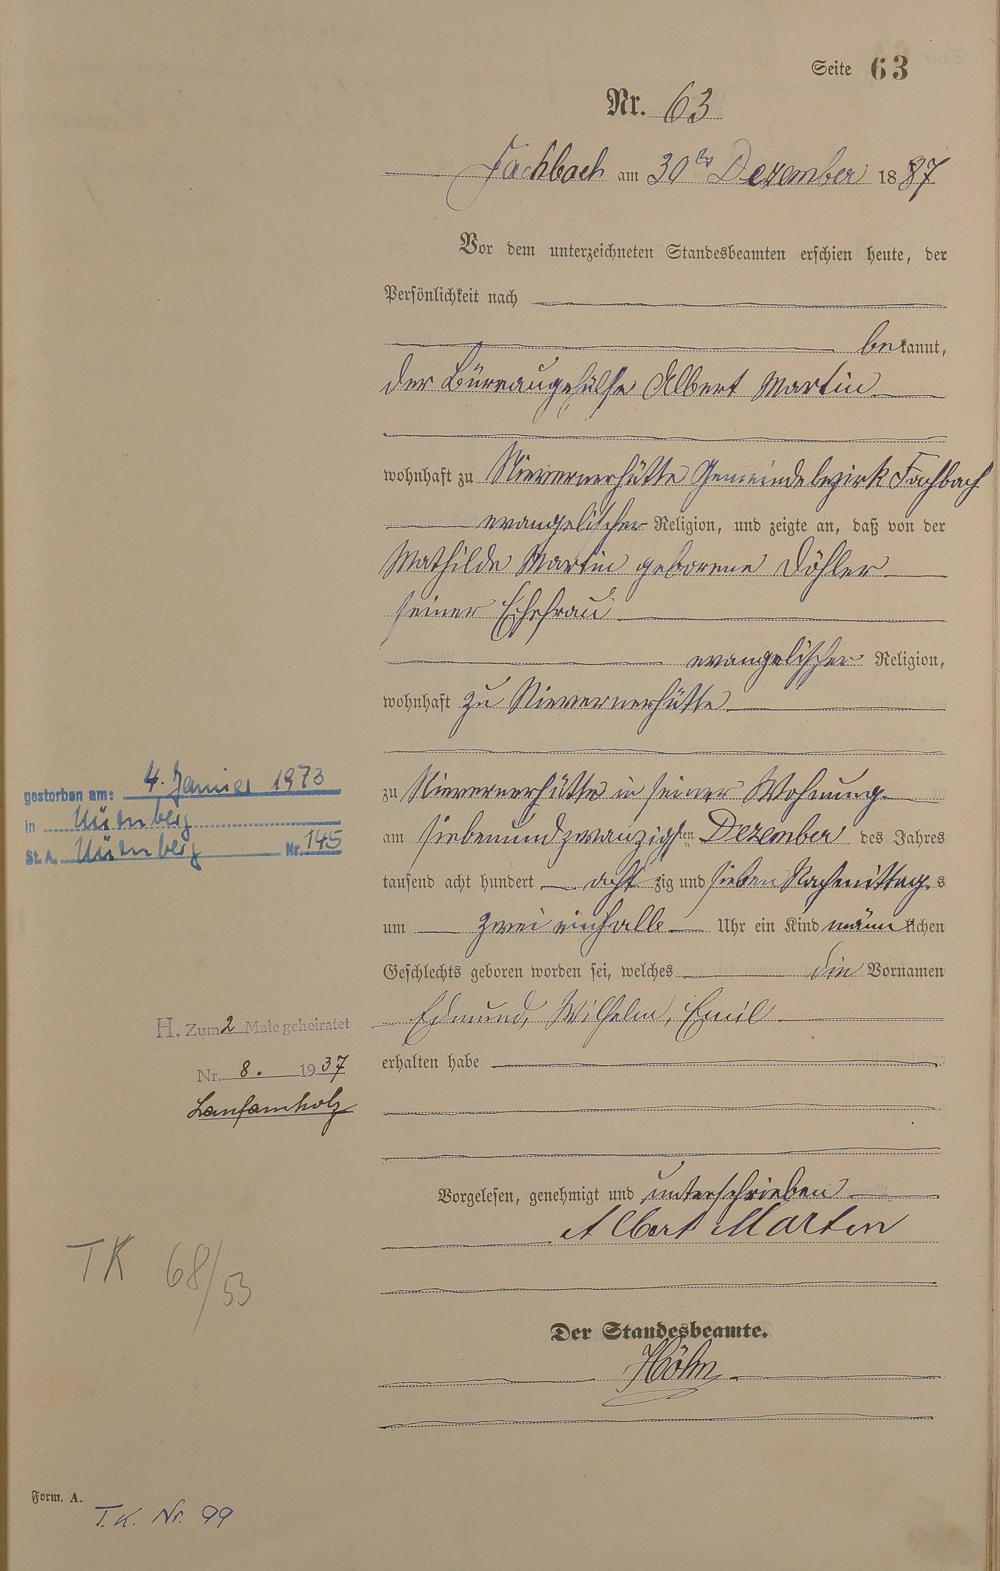 Seite 63
Nr. 63
Fachbach am 30ten Dezember 1887
Vor dem unterzeichneten Standesbeamten erschien heute, der
Persönlichkeit nach
bekannt,
der Büreaugehülfe Albert Martin
wohnhaft zu Nievernerhütte Gemeindebezirk Fachbach
evangelischer Religion, und zeigte an, daß von der
Mathilde Martin geborene Döhler
seiner Ehefrau
evangelischer Religion,
wohnhaft zu Nievernerhütte
zu Nievernerhütte in seiner Wohnung
am siebenundzwanzigsten Dezember des Jahres
tausend acht hundert achtzig und sieben Nachmittags
um zwei einhalb Uhr ein Kind männlichen
Geschlechts geboren worden sei, welches die Vornamen
Edmund, Wilhelm, Emil
erhalten habe
Vorgelesen, genehmigt und unterschrieben
Albert Martin
Der Standesbeamte.
Höhn
gestorben am: 4. Januar 1973
in Nürnberg
St. A. Nürnberg Nr. 145
H. Zum 2 Male geheiratet
Nr. 8. 1937
Laufamholz
TK 68/53
Form. A.
T.K. Nr. 99